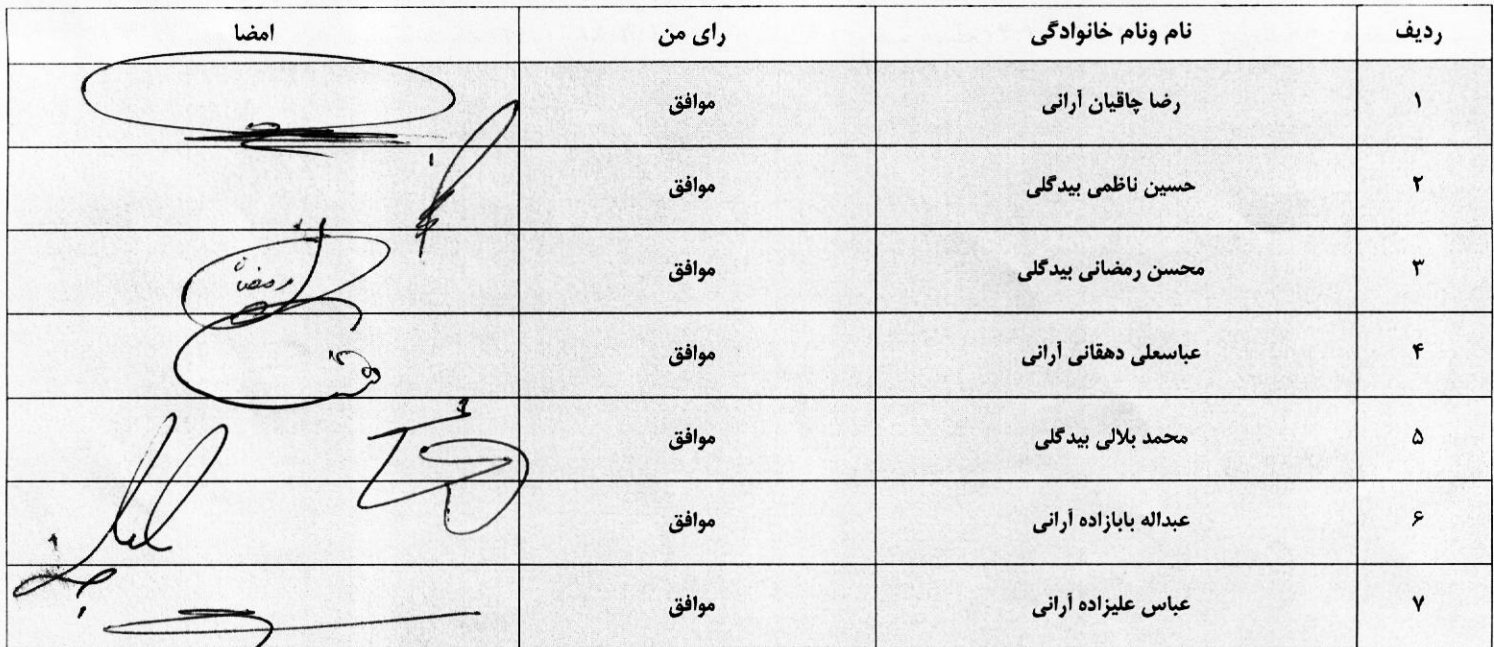 ردیف نام ونام خانوادگی رای من امضا
۱ رضا چاقیان آرانی موافق
۲ حسین ناظمی بیدگلی موافق
۳ محسن رمضانی بیدگلی موافق
۴ عباسعلی دهقانی آرانی موافق
۵ محمد بلالی بیدگلی موافق
۶ عبداله بابازاده آرانی موافق
۷ عباس علیزاده آرانی موافق